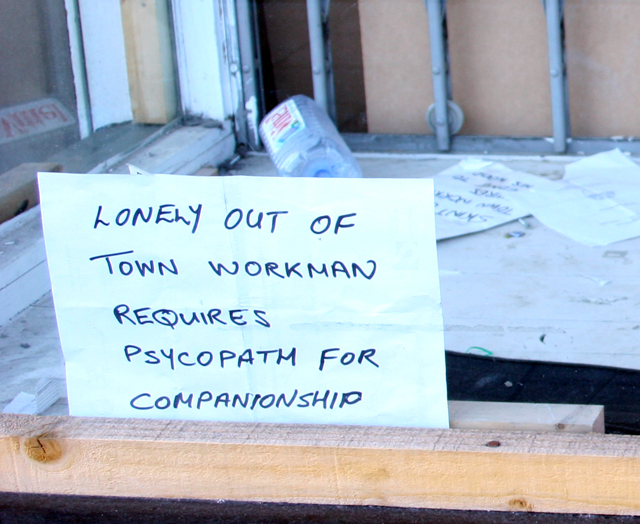 LONELY OUT OF
TOWN WORKMAN
REQUIRES
PSYCOPATH FOR
COMPANIONSHIP